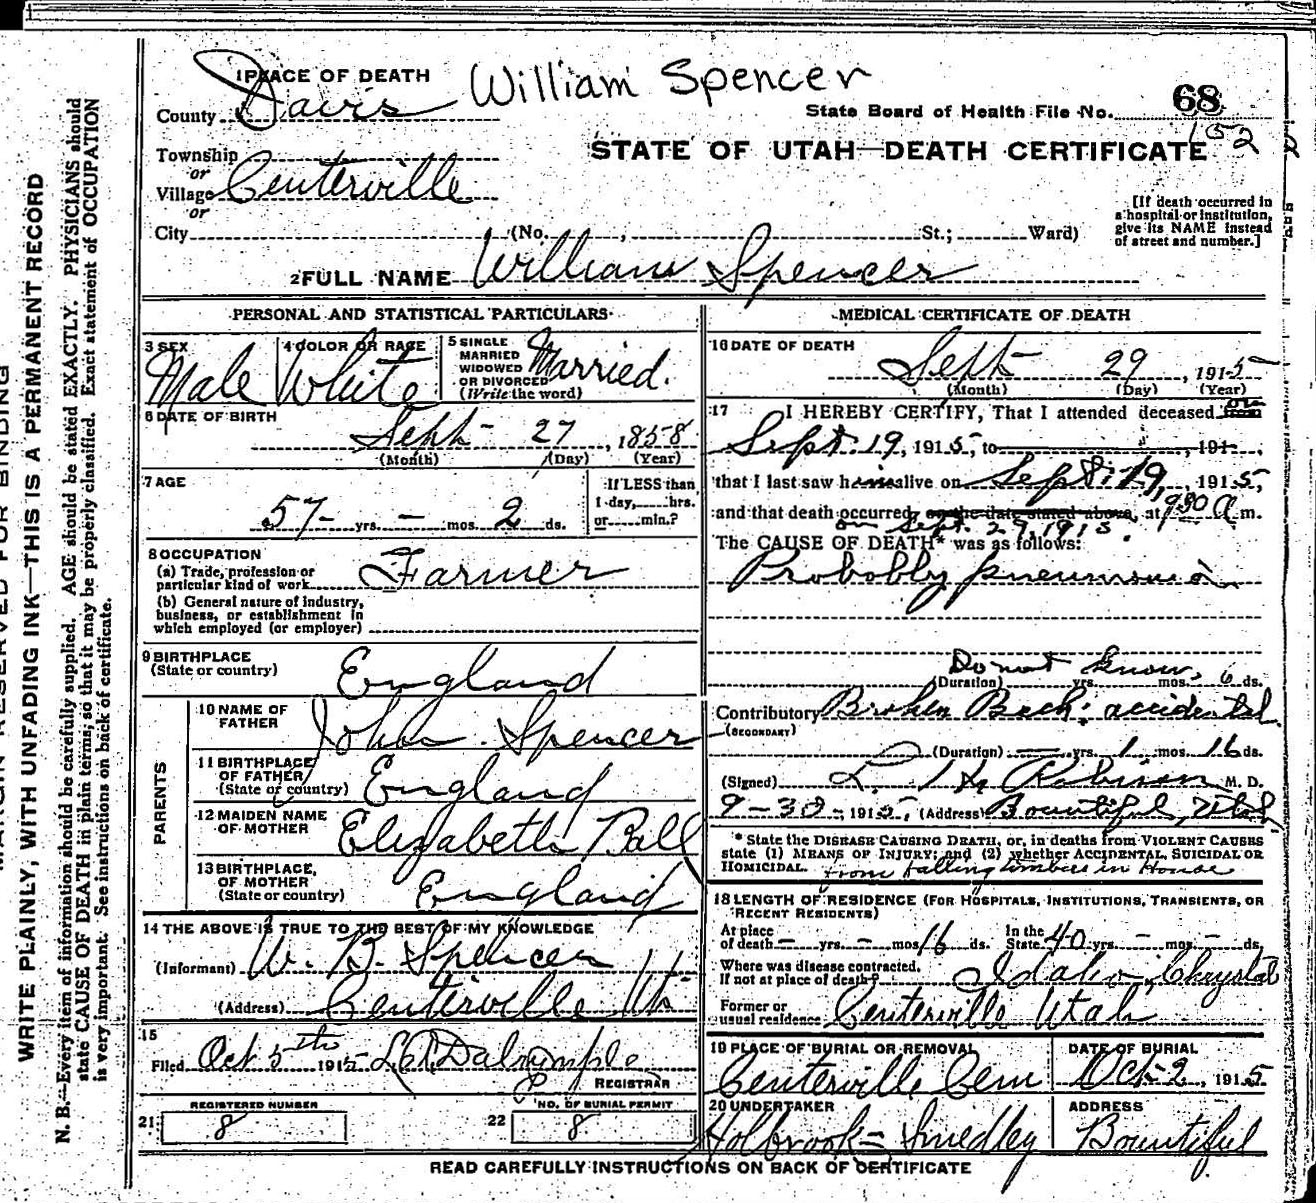 William Spencer
1 PLACE OF DEATH
County Davis
State Board of Health File No. 68
152
Township
or
Village Centerville
or
STATE OF UTAH—DEATH CERTIFICATE
[If death occurred in
a hospital or institution,
give its NAME instead
of street and number.]
City (No. , St.; Ward)
2 FULL NAME William Spencer
PERSONAL AND STATISTICAL PARTICULARS
3 SEX
Male
4 COLOR OR RACE
White
5 SINGLE
MARRIED
WIDOWED
OR DIVORCED
(Write the word)
Married.
6 DATE OF BIRTH
Sept - 27, 1858
(Month) (Day) (Year)
7 AGE
57 - yrs. - mos. 2 ds.
If LESS than
1 day, hrs.
or min.?
8 OCCUPATION
(a) Trade, profession or
particular kind of work Farmer
(b) General nature of industry,
business, or establishment in
which employed (or employer)
9 BIRTHPLACE
(State or country) England
PARENTS
10 NAME OF
FATHER John Spencer
11 BIRTHPLACE
OF FATHER
(State or country) England
12 MAIDEN NAME
OF MOTHER Elizabeth Ball
13 BIRTHPLACE,
OF MOTHER
(State or country) England
14 THE ABOVE IS TRUE TO THE BEST OF MY KNOWLEDGE
(Informant) W. B. Spencer
(Address) Centerville Ut
15
Filed Oct 5th 1915 Dalrymple
REGISTRAR
REGISTERED NUMBER
21 8
NO. OF BURIAL PERMIT
22 8
MEDICAL CERTIFICATE OF DEATH
16 DATE OF DEATH
Sept 29, 1915
(Month) (Day) (Year)
17 I HEREBY CERTIFY, That I attended deceased from on
Sept. 19, 1915, to , 191
that I last saw him alive on Sept. 19, 1915,
and that death occurred, on the date stated above, at 930 a m.
on Sept. 29, 1915.
The CAUSE OF DEATH* was as follows:
Probobly pneumonia
Do not know.
(Duration) yrs. mos. 6 ds.
Contributory Broken Back: accidental
(SECONDARY)
(Duration) — yrs. 1 mos. 16 ds.
(Signed) Robinson M. D.
9-30-1915, (Address) Bountiful, Utah
* State the DISEASE CAUSING DEATH, or, in deaths from VIOLENT CAUSES
state (1) MEANS OF INJURY; and (2) whether ACCIDENTAL, SUICIDAL OR
HOMICIDAL. from falling timbers in House
18 LENGTH OF RESIDENCE (FOR HOSPITALS, INSTITUTIONS, TRANSIENTS, OR
RECENT RESIDENTS)
At place
of death - yrs. - mos. 16 ds. In the
State 40 yrs. - mos. - ds.
Where was disease contracted.
If not at place of death? Idaho, Chrystal
Former or
usual residence Centerville Utah
19 PLACE OF BURIAL OR REMOVAL
Centerville Cem
DATE OF BURIAL
Oct-2, 1915
20 UNDERTAKER
Holbrook - Smedley
ADDRESS
Bountiful
READ CAREFULLY INSTRUCTIONS ON BACK OF CERTIFICATE
MARGIN RESERVED FOR BINDING
WRITE PLAINLY, WITH UNFADING INK—THIS IS A PERMANENT RECORD
N. B.—Every item of information should be carefully supplied. AGE should be stated EXACTLY. PHYSICIANS should
state CAUSE OF DEATH in plain terms, so that it may be properly classified. Exact statement of OCCUPATION
is very important. See instructions on back of certificate.